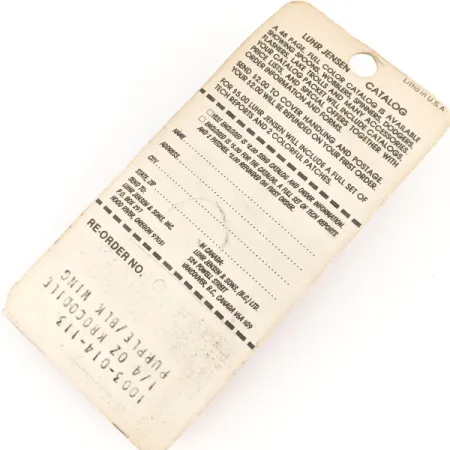 LUHR JENSEN CATALOG
A 48 PAGE, FULL COLOR CATALOG IS AVAILABLE
SHOWING SPOONS, WOBBLERS, SPINNERS, DODGERS,
FLASHERS, LAKE TROLLS AND MANY ACCESSORIES.
YOUR CATALOG PACKET WILL INCLUDE CATALOGS,
PRICE LISTS, AND SPECIAL OFFERS TOGETHER WITH
ORDER INFORMATION AND FORMS.
SEND $2.00 TO COVER HANDLING AND POSTAGE.
YOUR $2.00 WILL BE REFUNDED ON YOUR FIRST ORDER.
FOR $5.00 LUHR JENSEN WILL INCLUDE A FULL SET OF
TECH REPORTS AND 2 COLORFUL PATCHES.
ENCLOSED IS 2.00 SEND CATALOG AND ORDER INFORMATION.
ENCLOSED IS $5.00 FOR THE CATALOG, FULL SET OF TECH REPORTS
AND 2 PATCHES. $2.00 REFUNDED ON FIRST ORDER.
NAME
ADDRESS
CITY
STATE, ZIP
SEND TO:
LUHR JENSEN & SONS, INC.
P.O. BOX 297
HOOD RIVER, OREGON 97031
IN CANADA:
LUHR JENSEN & SONS, (B.C.) LTD.
524 POWELL STREET
VANCOUVER, B.C., CANADA V6A 1G9
RE-ORDER NO.
1003-014-1113
1/4 OZ KROCODILE
PURPLE/BLK WING
Litho in U.S.A.